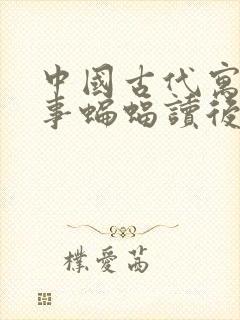 中國古代寓
事蝙蝠讀後
樸愛茜